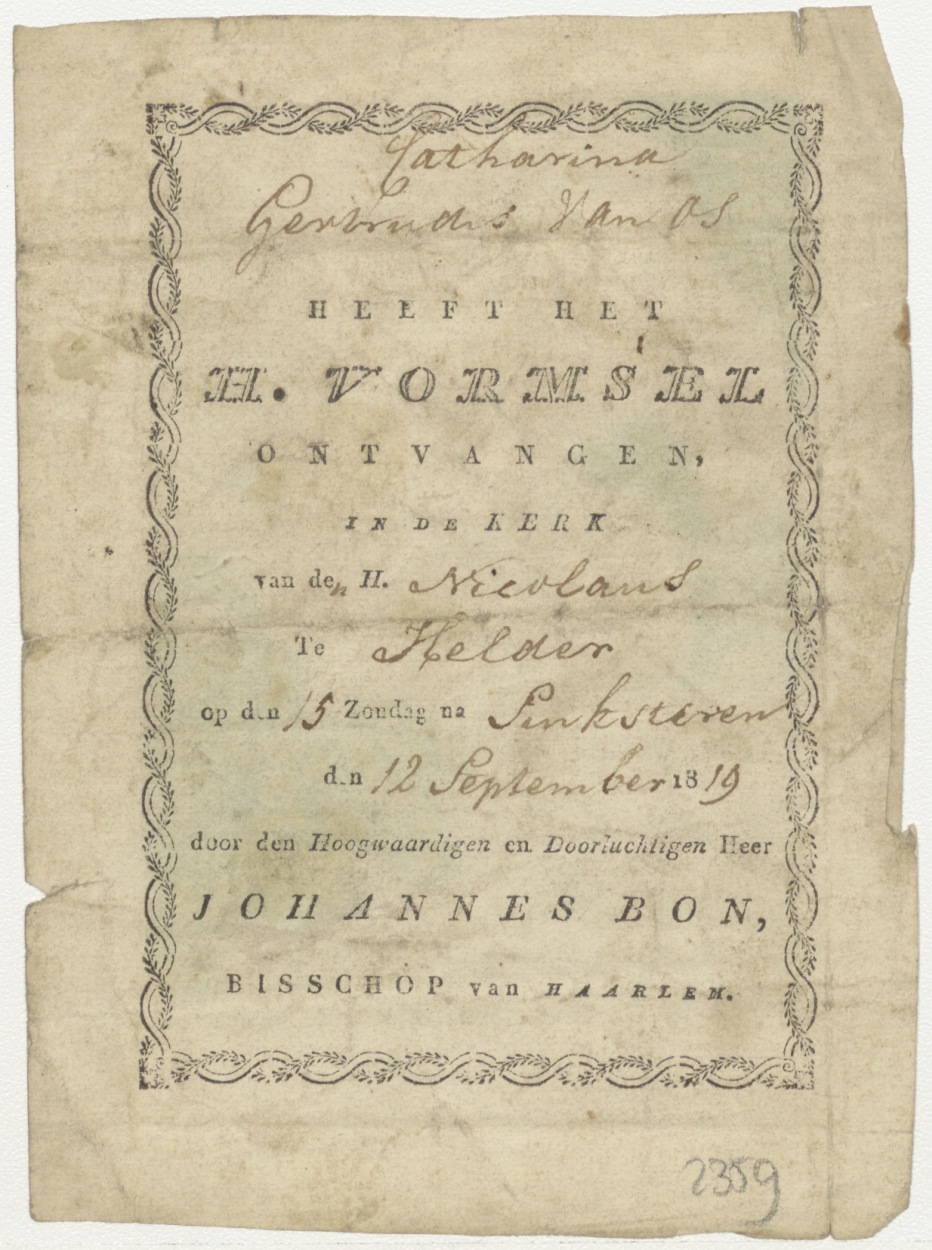 Catharina
Gertrudis Van Os
HEEFT HET
H. VORMSEL
ONTVANGEN,
IN DE KERK
van den H. Nicolaus
Te Helder
op den 15 Zondag na Pinksteren
den 12 September 1819
door den Hoogwaardigen en Doorluchtigen Heer
JOHANNES BON,
BISSCHOP van HAARLEM.
2359